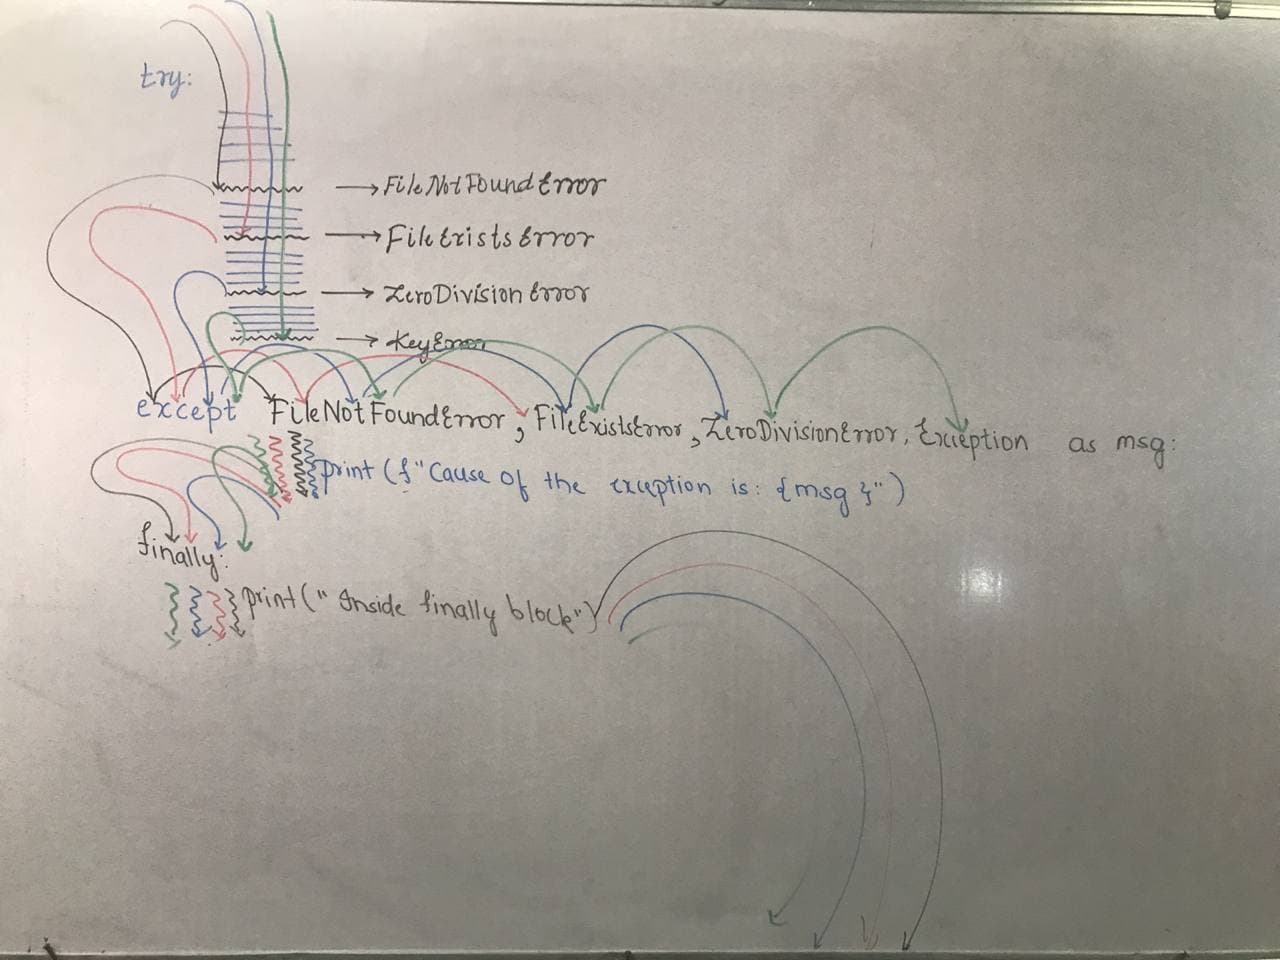 try:
→FileNotFoundError
→FileExistsError
→ZeroDivisionError
→KeyError
except FileNotFoundError, FileExistsError, ZeroDivisionError, Exception as msg:
print(f"Cause of the exception is: {msg}")
finally:
print("Inside finally block")